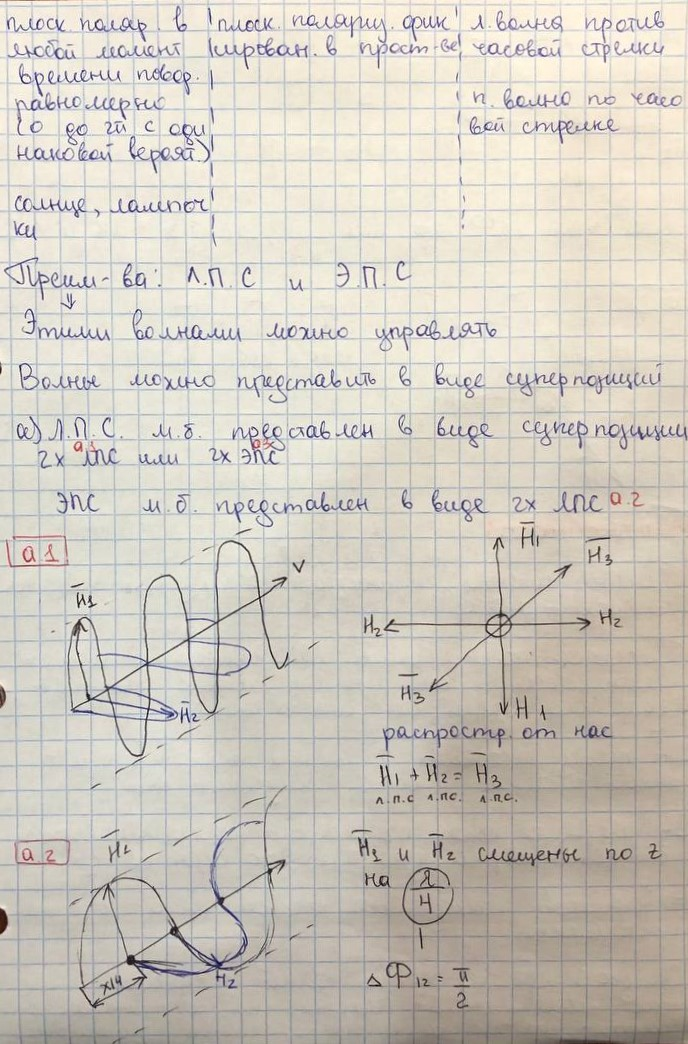 плоск. поляр. в
любой момент
времени повор.
равномерно
(0 до 2π с оди
наковой вероят.)
солнце, лампоч
ки
плоск. поляриз. фик
сирован. в прост-ве
л. волна против
часовой стрелки
п. волна по часо
вой стрелке
Преим-ва: Л.П.С и Э.П.С
⇓
Этими волнами можно управлять
Волны можно представить в виде суперпозиций
а) Л.П.С. м.б. представлен в виде суперпозиции
а.1
2х ЛПС или 2х ЭПС
ЭПС м.б. представлен в виде 2х ЛПС а.2
а 1
H̅1
V
H̅2
H̅1
H̅3
H2
H2
H̅3
H 1
распростр. от нас
H̅1 + H̅2 = H̅3
л.п.с л.пс. л.пс.
а 2
H̅1
H2
λ/4
H̅1 и H̅2 смещены по z
на λ/4
Δ Φ12 = π/2